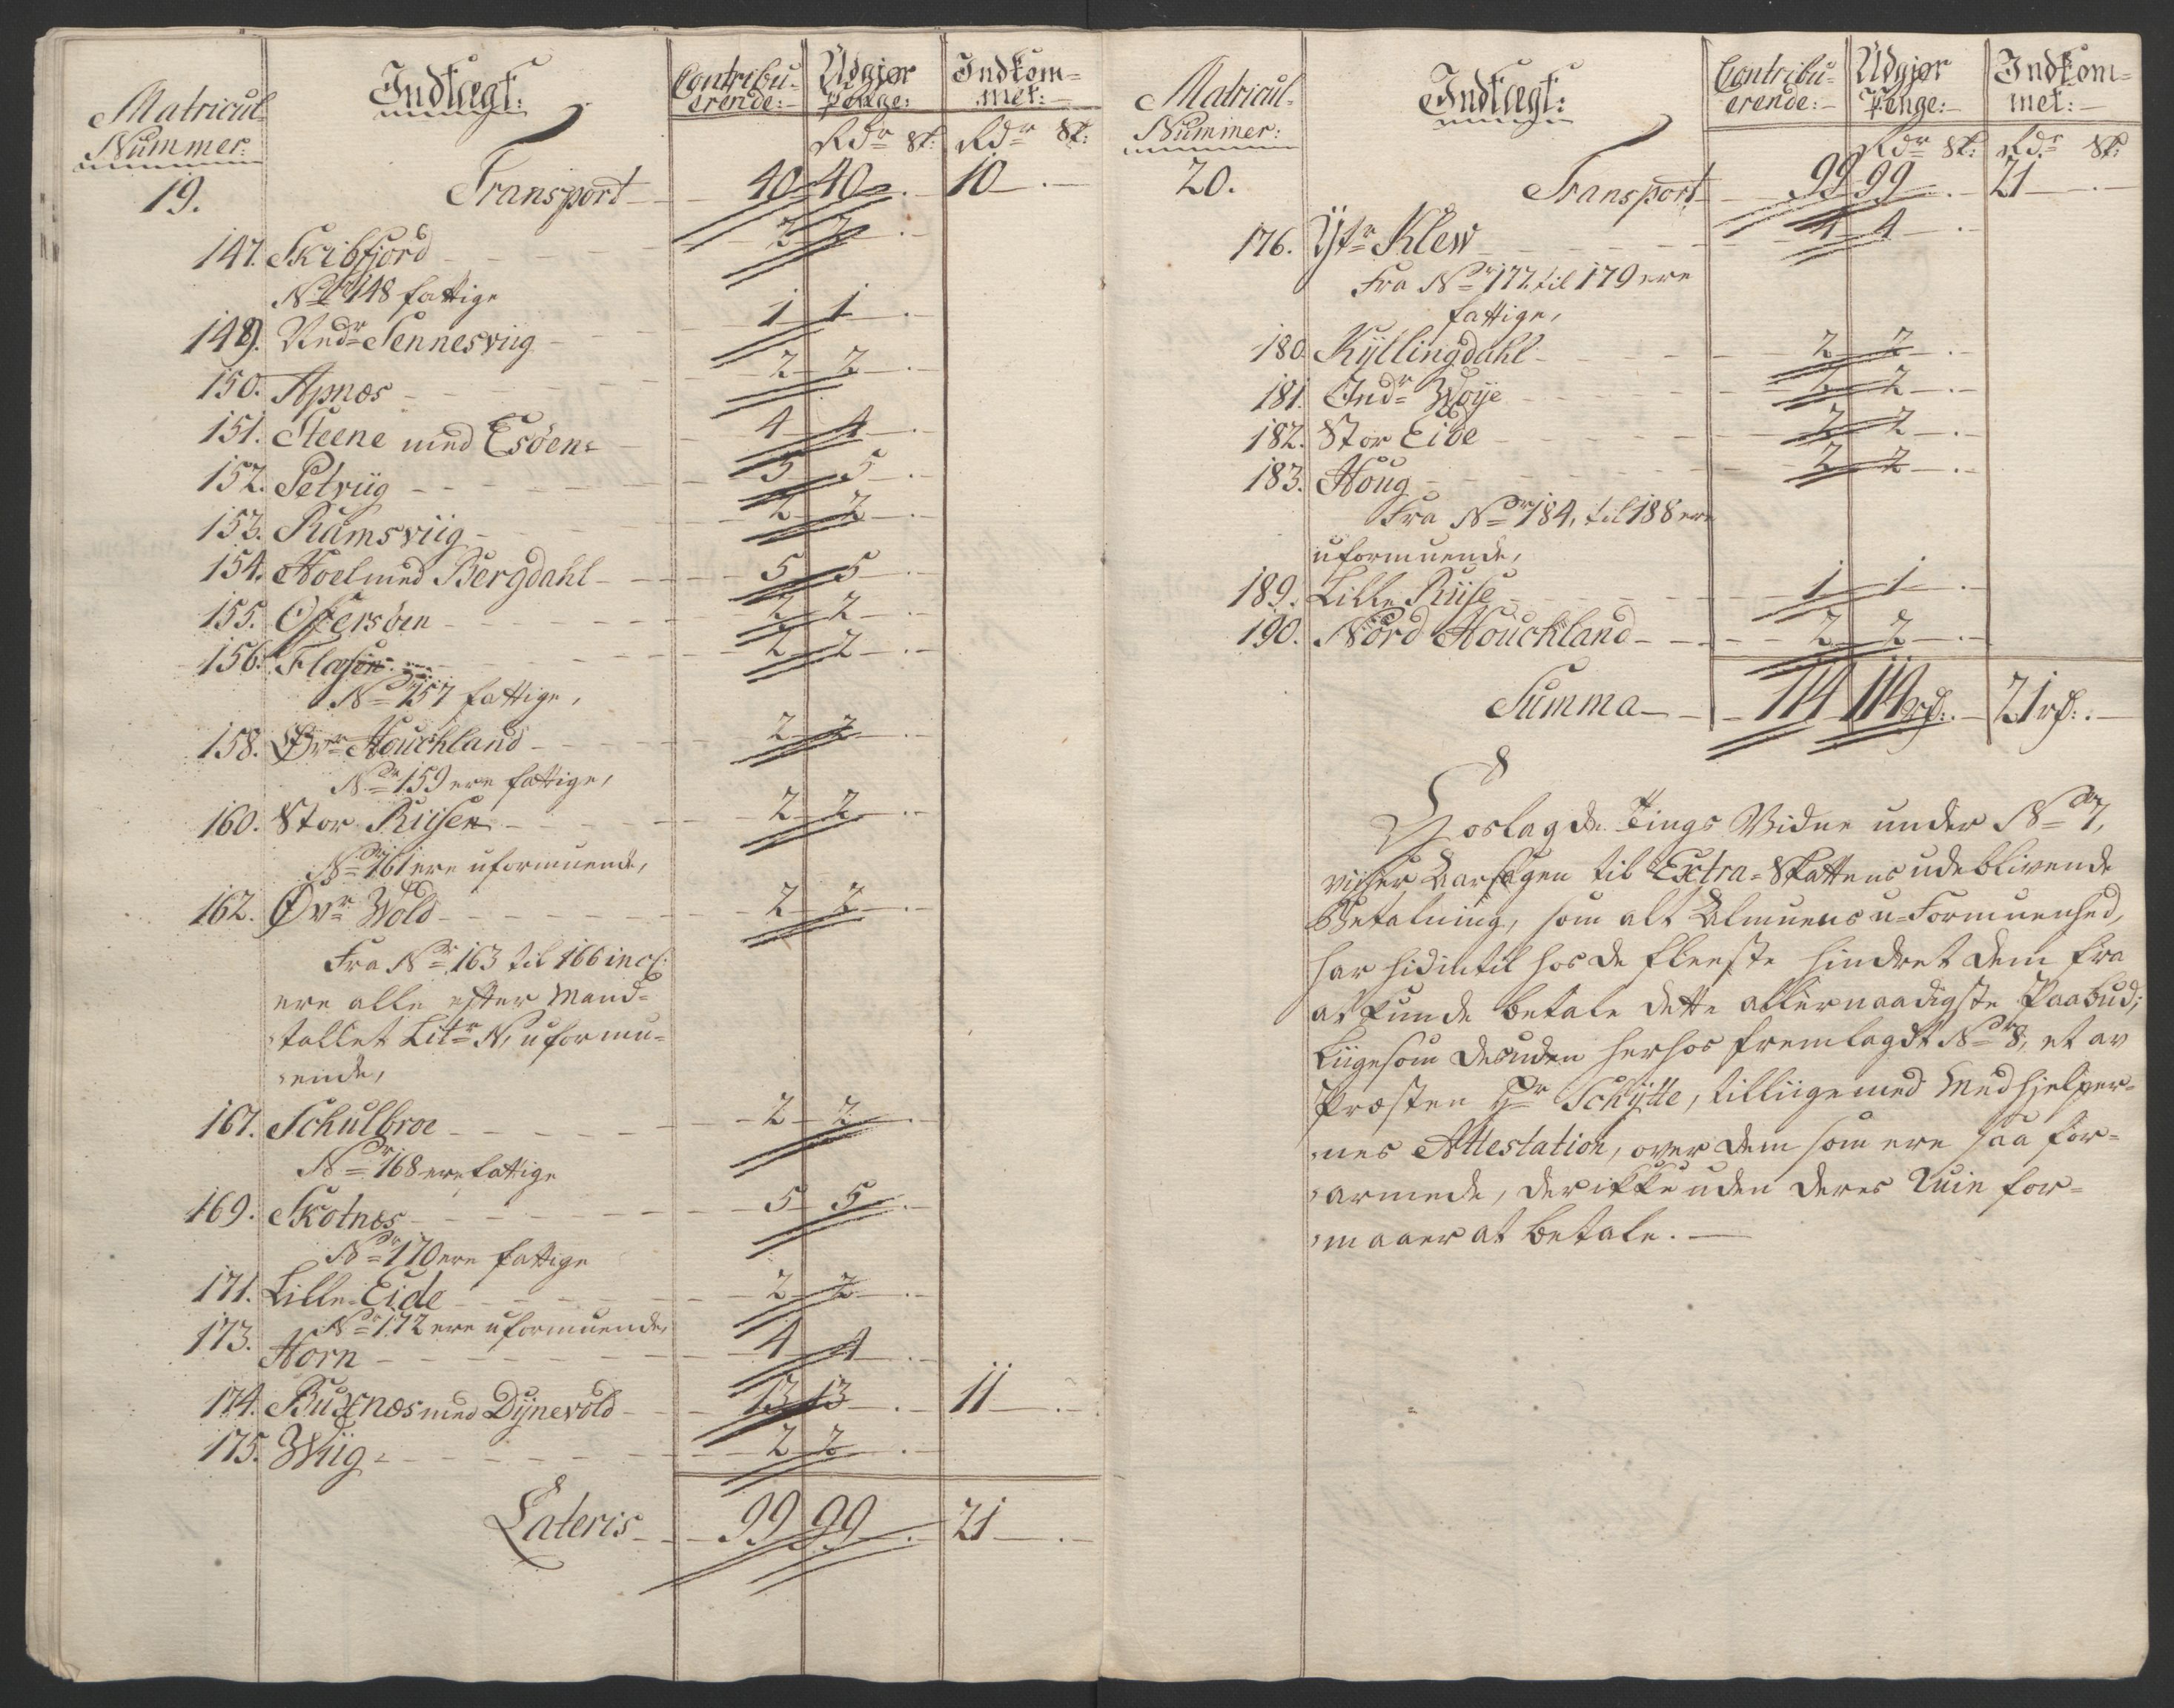 Matricul Nummer: Indtægt: Contribuerende: Udgjør Penge: Indkommet:
Rdr ß: Rdr ß:
19. Transport 40 40 10
147. Skribfjord 2 2
No 148 fattige
149. Nedr Sennesviig 1 1
150. Apnæs 2 2
151. Steene med Esöen 4 4
152. Petviig 5 5
153. Ramsviig 2 2
154. Hoel med Bergdahl 5 5
155. Offersöen 2 2
156. Flæsen 2 2
No 157 fattige,
158. Øvr Houchland 2 2
No 159 ere fattige,
160. Stor Riisen 2 2
No 161 ere uformuende,
162. Øvr Wold 2 2
Fra No 163 til 166 incl:
ere alle efter Mand-
tallet Litr N, uformu-
ende,
167. Schulbroe 2 2
No 168 ere fattige
169. Skotnæs 5 5
No 170 ere fattige
171. Lille Eide 2 2
No 172 ere uformuende,
173. Horn 4 4
174. Buxnæs med Dynevold 13 13 11
175. Wiig 2 2
Lateris 99 99 21
Matricul Nummer: Indtægt: Contribuerende: Udgjør Penge: Indkommet:
Rdr ß: Rdr ß:
20. Transport 99 99 21
176. Ytr Klew 4 4
Fra No 177 til 179 ere
fattige,
180. Kyllingdahl 2 2
181. Indr Woye 2 2
182. Stor Eide 2 2
183. Houg 2 2
Fra No 184, til 188 ere
uformuende,
189. Lille Riise 1 1
190. Nord Houckland 2 2
Summa 114 114 rd: 21 rd:
Hoslagde Tings Vidne under No 7,
viiser Aarsagen til Extra-Skattens udeblivende
Betalning, som alt Almuens u-Formuenhed,
har hidintil hos de fleeste hindret dem fra
at kunde betale dette allernaadigste Paabud;
Liigesom desuden herhos fremlagdt No 8, et av
Præsten Hr Schytte, tilliige med Medhielper-
nes Attestation, over dem som ere saa for-
armede, der ikke uden deres Ruin for-
maaer at betale.